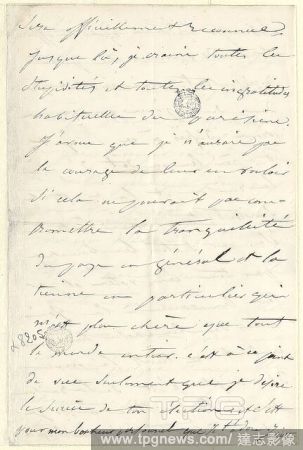 sera officiellement reconnue
jusque là, je crains toutes les
stupidités et toutes les ingratitudes
habituelles du
J'avoue que je n'aurais pas
le courage de leur en vouloir
si cela ne pouvait pas com-
promettre la tranquillité
du pays en général et la
tienne en particulier qui
m'est plus chère que tout
le monde entier. c'est à ce point
de vue seulement que je désire
le succès de ton élection et c'est
pour mon bonheur personnel que
TPG
www.tpgnews.com / 達志影像